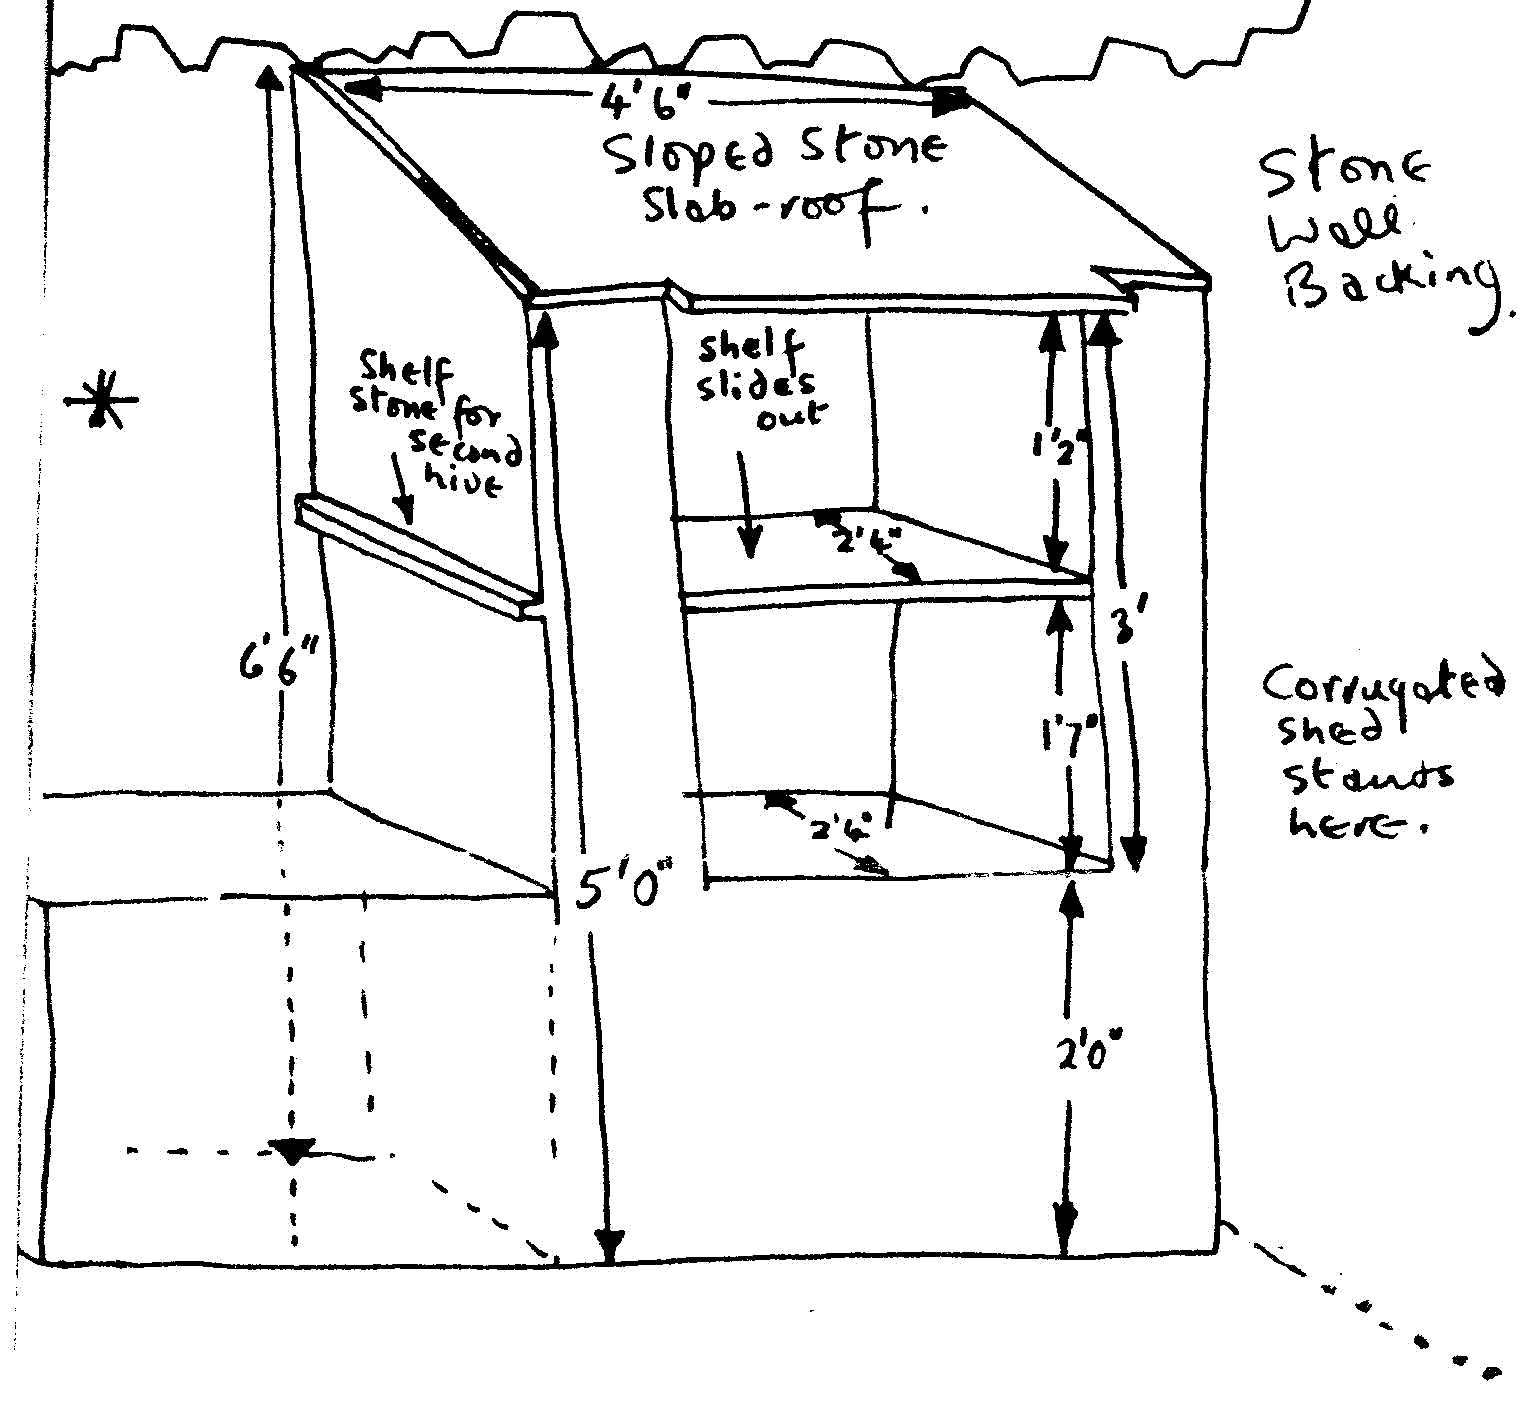 4'6"
Sloped Stone
Slab-roof.
Stone
Wall
Backing.
Shelf
stone for
second
hive
shelf
slides
out
1'2"
2'4"
3'
6'6"
1'7"
Corrugated
shed
stands
here.
2'4"
5'0"
2'0"